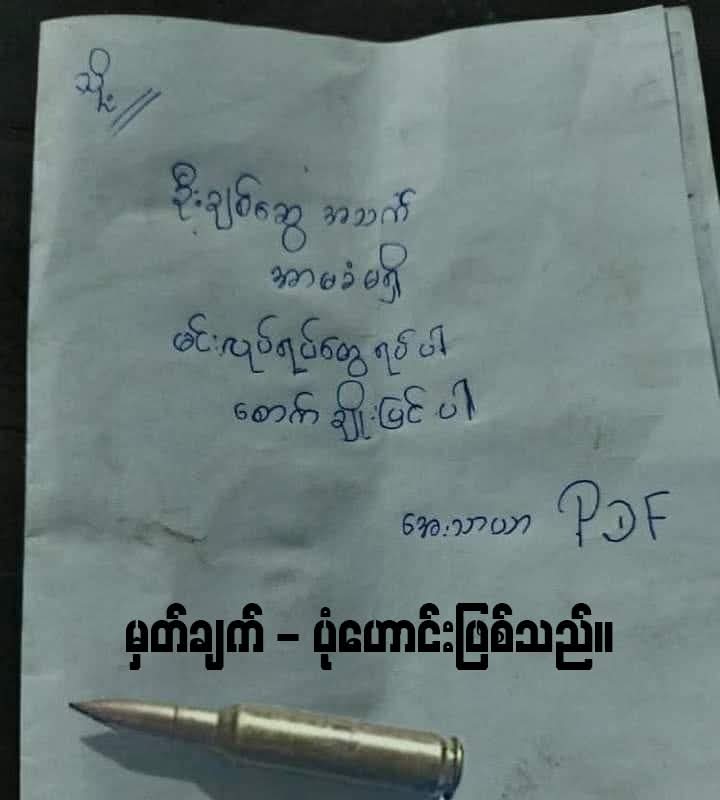 သို့//
ဦးချစ်ဆွေ အသက်
အာမခံမရှိ
မင်းလုပ်ရပ်တွေ ရပ်ပါ
စောက်ချိုးပြင်ပါ
အေးသာယာ PDF
မှတ်ချက် – ပုံဟောင်းဖြစ်သည်။